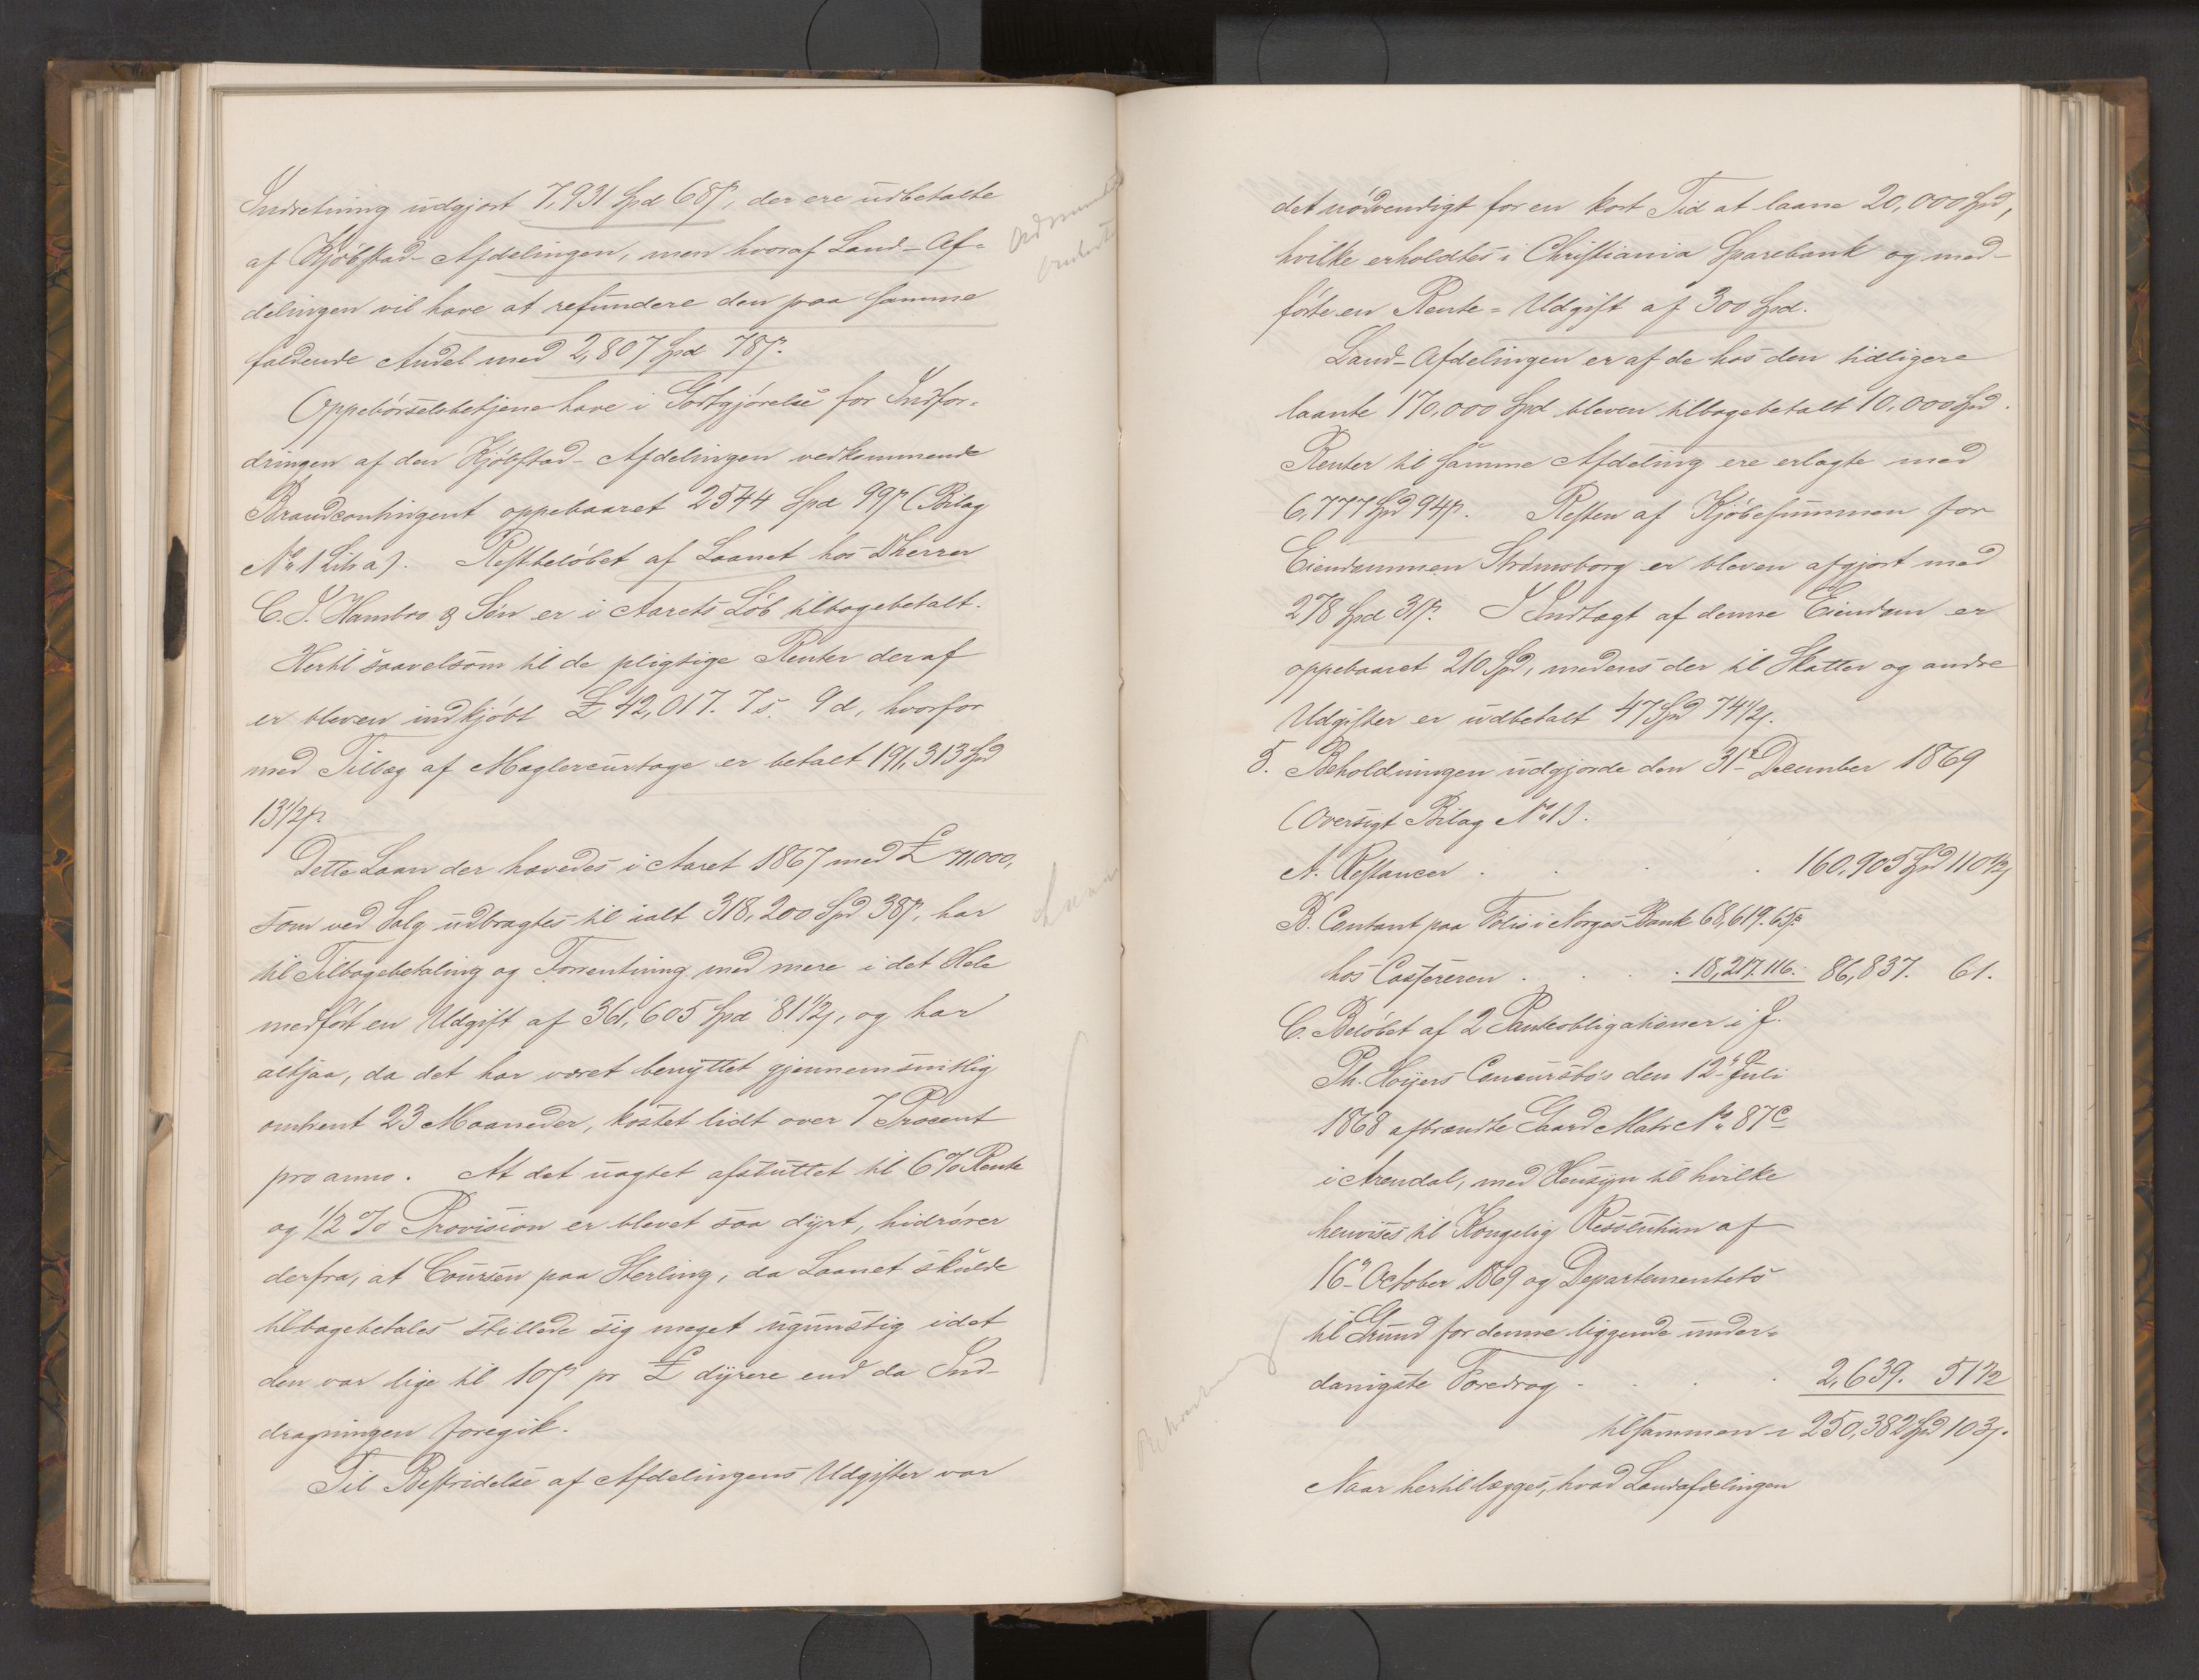 Indretning udgjort 7,931 Spd 68 ſz, der ere udbetalte
af Kjöbstad-Afdelingen, men hvoraf Land-Af-
delingen vil have at refundere den paa samme
faldende Andel med 2,807 Spd 78 ſz.
Oppebörselsbetjene have i Godtgjörelse for Indfor-
dringen af den Kjöbstad-Afdelingen vedkommende
Brandcontingent oppebaaret 2544 Spd 99 ſz (Bilag
No 1 Litr a). Restbelöbet af Laanet hos DHerrer
C. J. Hambro & Sön er i Aarets Löb tilbagebetalt.
Hertil saavelsom til de pligtige Renter deraf
er bleven indkjöbt £ 42,017. 7 s. 9 d, hvorfor
med Tillæg af Maglercurtage er betalt 191,313 Spd
13½ ſz
Dette Laan der hævedes i Aaret 1867 med £ 71,000,
som ved Salg udbragtes til ialt 318,200 Spd 38 ſz, har
til Tilbagebetaling og Forrentning med mere i det Hele
medfört en Udgift af 361,605 Spd 81½ ſz, og har
altsaa, da det har været benyttet gjennemsnitlig
omtrent 23 Maaneder, kostet lidt over 7 Procent
pro anno. At det uagtet afsluttet til 6% Rente
og ½ % Provision er blevet saa dyrt, hidrörer
derfra, at Coursen paa Sterling, da Laanet skulde
tilbagebetales stillede sig meget ugunstig idet
den var lige til 10 ſz pr £ dyrere end da Ind-
dragningen foregik.
Til Bestridelse af Afdelingens Udgifter var
det nödvendigt for en kort Tid at laane 20,000 Spd,
hvilke erholdtes i Christiania Sparebank og med-
förte en Rente-Udgift af 300 Spd.
Land-Afdelingen er af de hos den tidligere
laante 170,000 Spd bleven tilbagebetalt 10,000 Spd.
Renter til samme Afdeling ere erlagte med
6,777 Spd 94 ſz. Resten af Kjöbesummen for
Eiendommen Strömsborg er bleven afgjort med
278 Spd 3 ſz. I Indtægt af denne Eiendom er
oppebaaret 210 Spd, medens der til Skatter og andre
Udgifter er udbetalt 47 Spd 74½ ſ.
5. Beholdningen udgjorde den 31te December 1869
(Oversigt Bilag No 1).
A. Restancer . . . . 160,905 Spd 110½ ſ
B. Contant paa Folio i Norges Bank 68,619. 65 ſz
hos Cassereren . . . 18,217. 116. 86,837. 61.
C. Belöbet af 2 Panteobligationer i J.
Ph. Hoyers Concursbo's den 12te Juli
1868 afbrændte Gaard Matr No 87c
i Arendal, med Hensyn til hvilke
henvises til Kongelig Resolution af
16de October 1869 og Departementets
til Grund for denne liggende under-
danigste Foredrag . . . . 2,639. 51½
tilsammen = 250,382 Spd 103 ſ.
Naar hertil lægges, hvad Landafdelingen